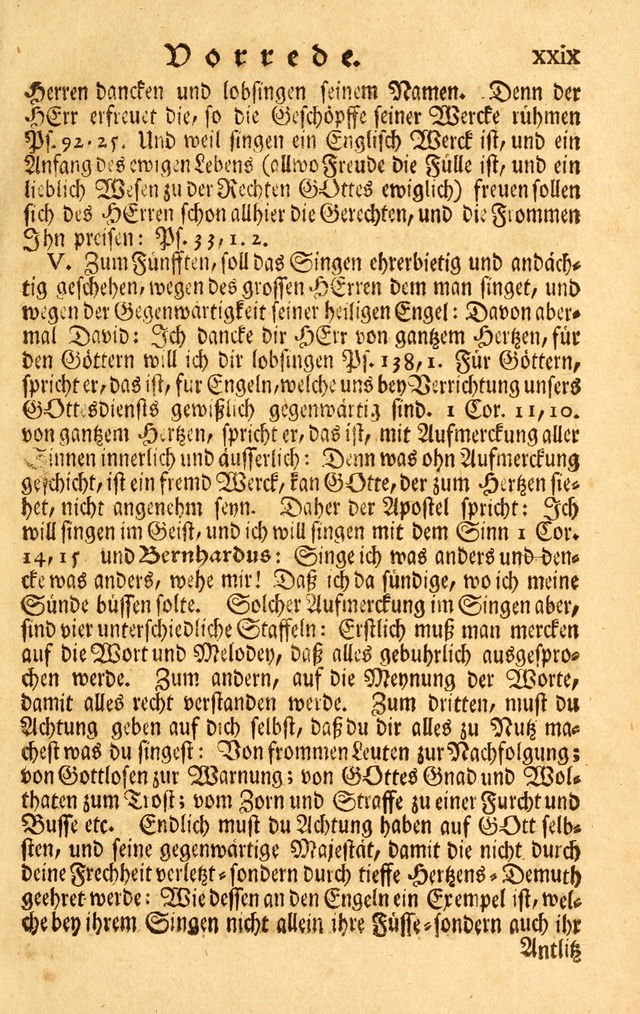 Vorrede. xxix
Herren dancken und lobsingen seinem Namen. Denn der
HErr erfreuet die, so die Geschöpffe seiner Wercke rühmen
Ps. 92. 25. Und weil singen ein Englisch Werck ist, und ein
Anfang des ewigen Lebens (allwo Freude die Fülle ist, und ein
lieblich Wesen zu der Rechten GOttes ewiglich) freuen sollen
sich des HErren schon allhier die Gerechten, und die Frommen
Ihn preisen: Ps. 33, 1. 2.
V. Zum Fünfften, soll das Singen ehrerbietig und andäch-
tig geschehen, wegen des grossen HErren dem man singet, und
wegen der Gegenwärtigkeit seiner heiligen Engel: Davon aber-
mal David: Ich dancke dir HErr von gantzem Hertzen, für
den Göttern will ich dir lobsingen Ps. 138, 1. Für Göttern,
spricht er, das ist, für Engeln, welche uns bey Verrichtung unsers
GOttesdiensts gewißlich gegenwärtig sind. 1 Cor. 11, 10.
von gantzem Hertzen, spricht er, das ist, mit Aufmerckung aller
Sinnen innerlich und äusserlich: Denn was ohn Aufmerckung
geschicht, ist ein fremd Werck, kan GOtte, der zum Hertzen sie-
het, nicht angenehm seyn. Daher der Apostel spricht: Ich
will singen im Geist, und ich will singen mit dem Sinn 1 Cor.
14, 15 und Bernhardus: Singe ich was anders und den-
cke was anders, wehe mir! Daß ich da sündige, wo ich meine
Sünde büssen solte. Solcher Aufmerckung im Singen aber,
sind vier unterschiedliche Staffeln: Erstlich muß man mercken
auf die Wort und Melodey, daß alles gebuhrlich ausgespro-
chen werde. Zum andern, auf die Meynung der Worte,
damit alles recht verstanden werde. Zum dritten, must du
Achtung geben auf dich selbst, daß du dir alles zu Nutz ma-
chest was du singest: Von frommen Leuten zur Nachfolgung;
von Gottlosen zur Warnung; von GOttes Gnad und Wol-
thaten zum Trost; vom Zorn und Straffe zu einer Furcht und
Busse etc. Endlich must du Achtung haben auf GOtt selb-
sten, und seine gegenwärtige Majestät, damit die nicht durch
deine Frechheit verletzt-sondern durch tieffe Hertzens-Demuth
geehret werde: Wie dessen an den Engeln ein Exempel ist, wel-
che bey ihrem Singen nicht allein ihre Füsse-sondern auch ihr
Antlitz